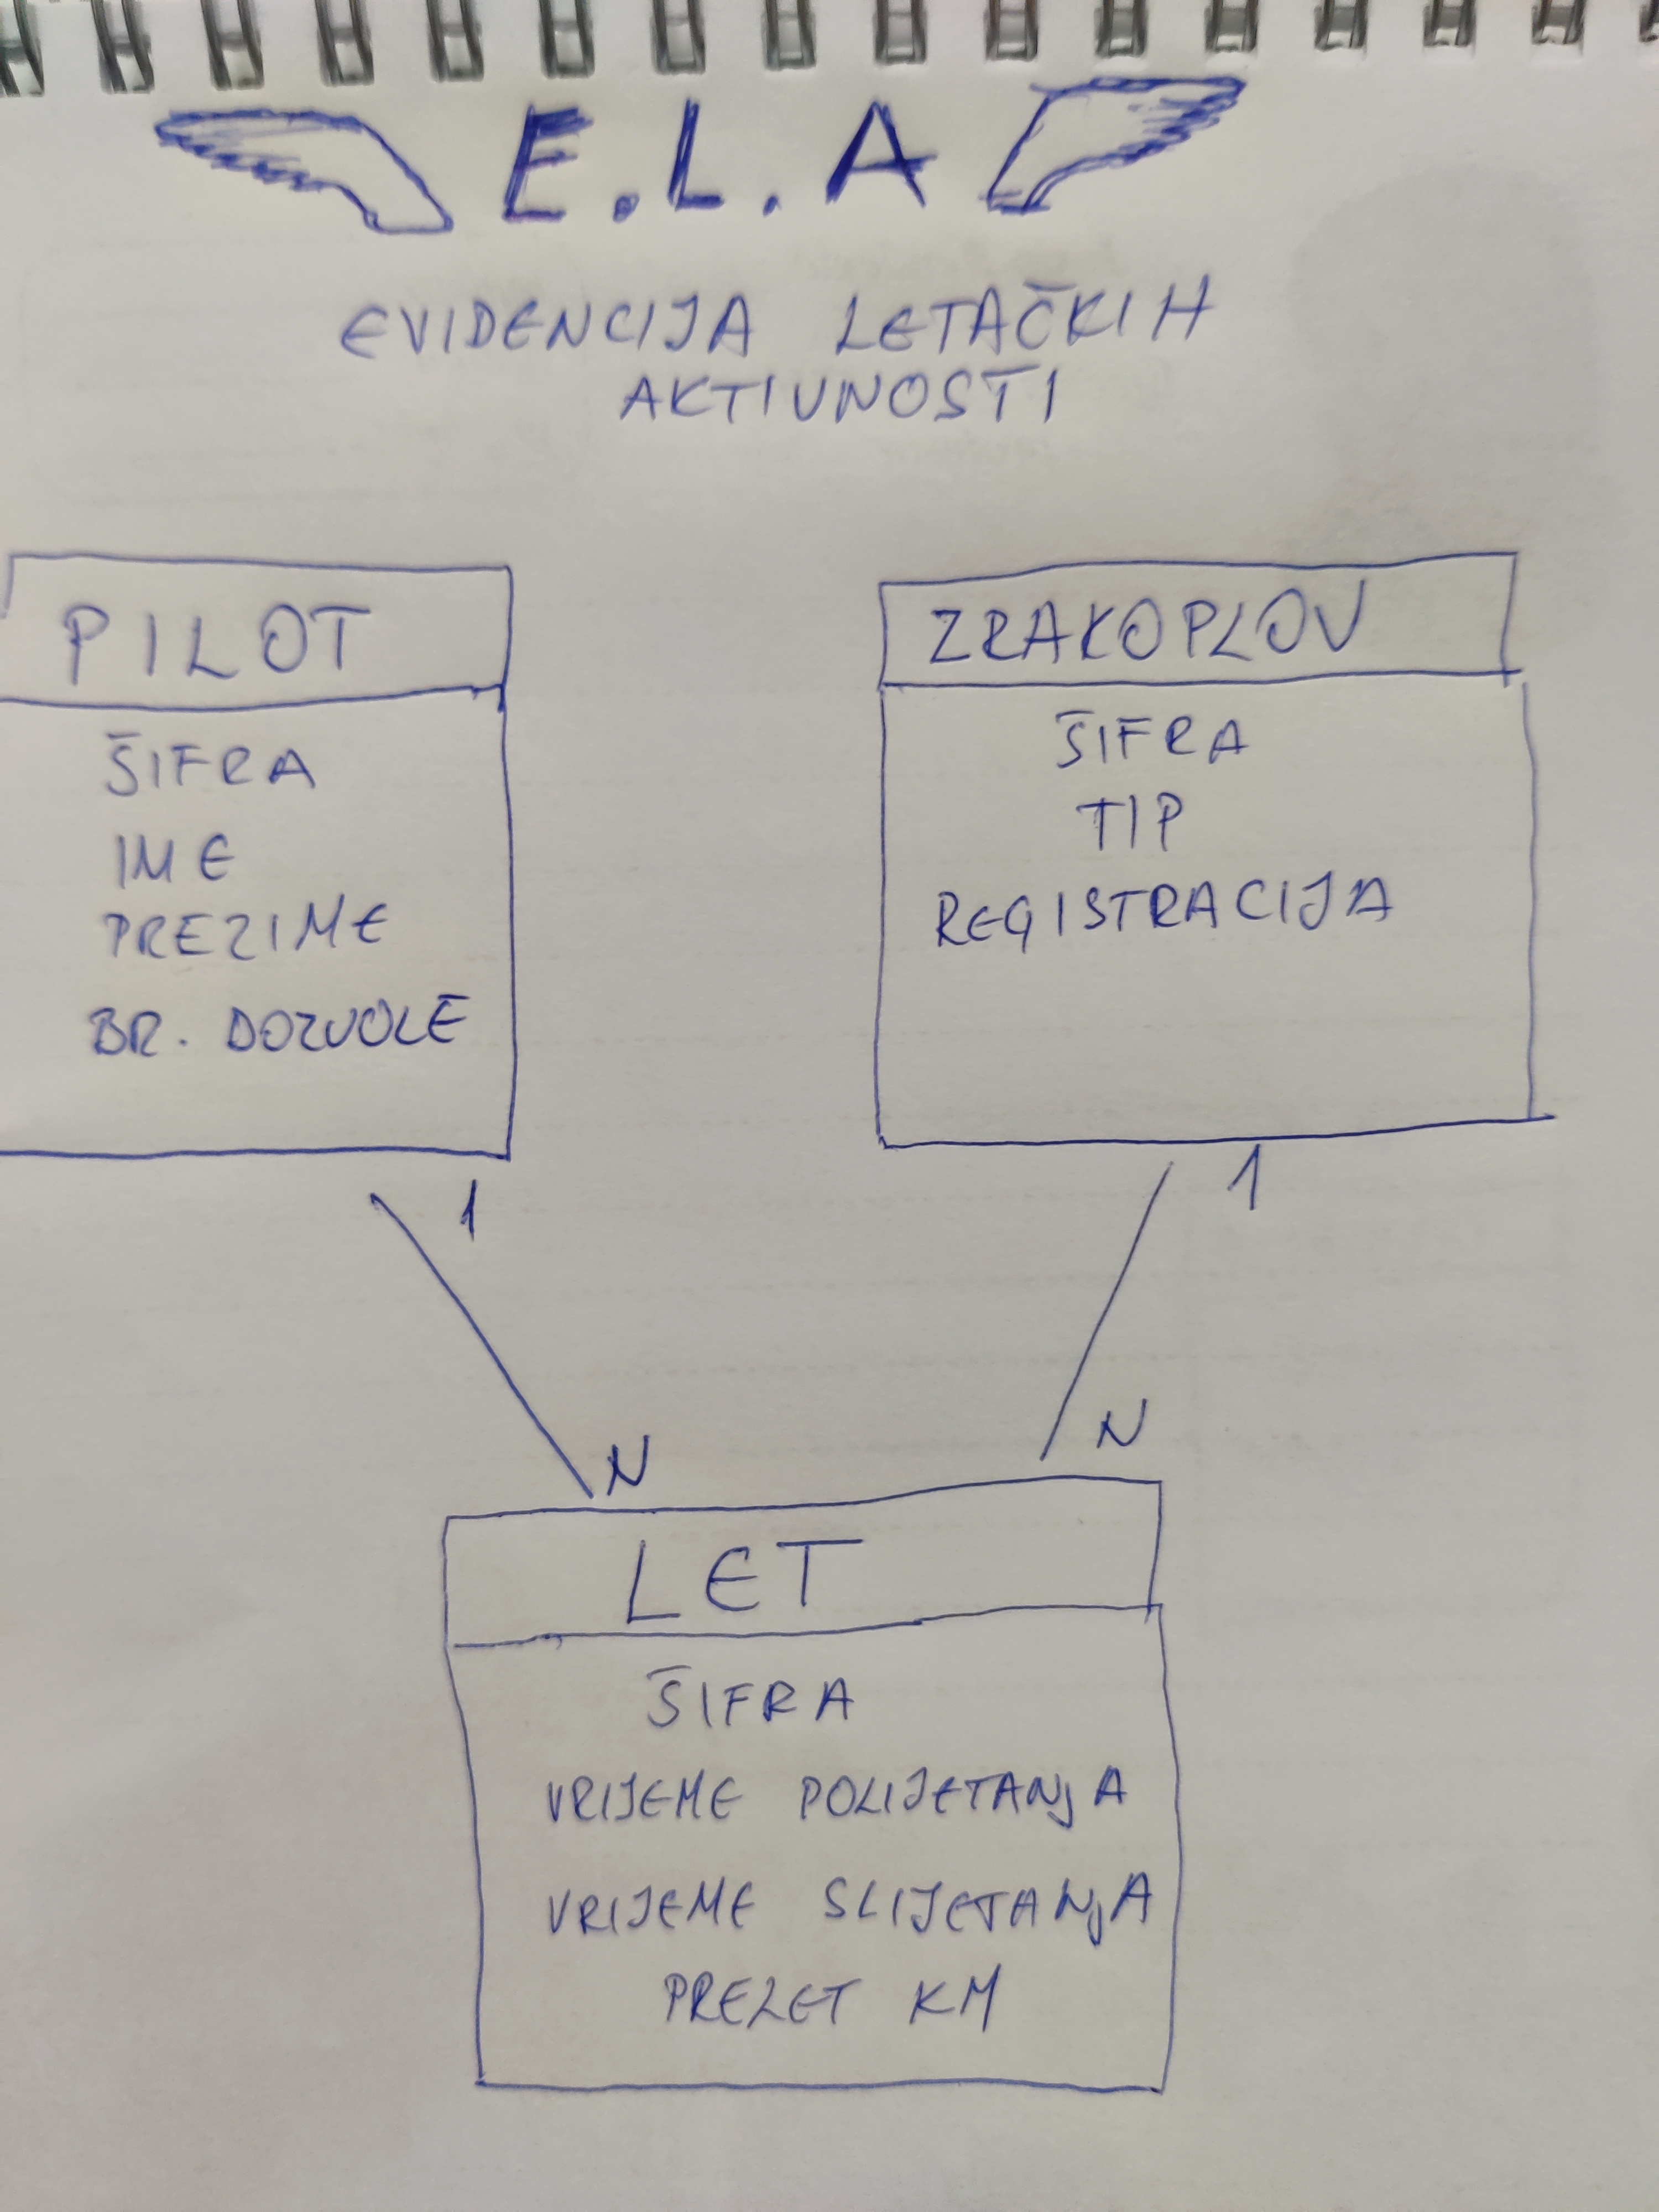 E.L.A
EVIDENCIJA LETAČKIH
AKTIVNOSTI
PILOT
ŠIFRA
IME
PREZIME
BR. DOZVOLE
1
ZRAKOPLOV
ŠIFRA
TIP
REGISTRACIJA
1
N
N
LET
ŠIFRA
VRIJEME POLIJETANjA
VRIJEME SLIJETANjA
PRELET KM